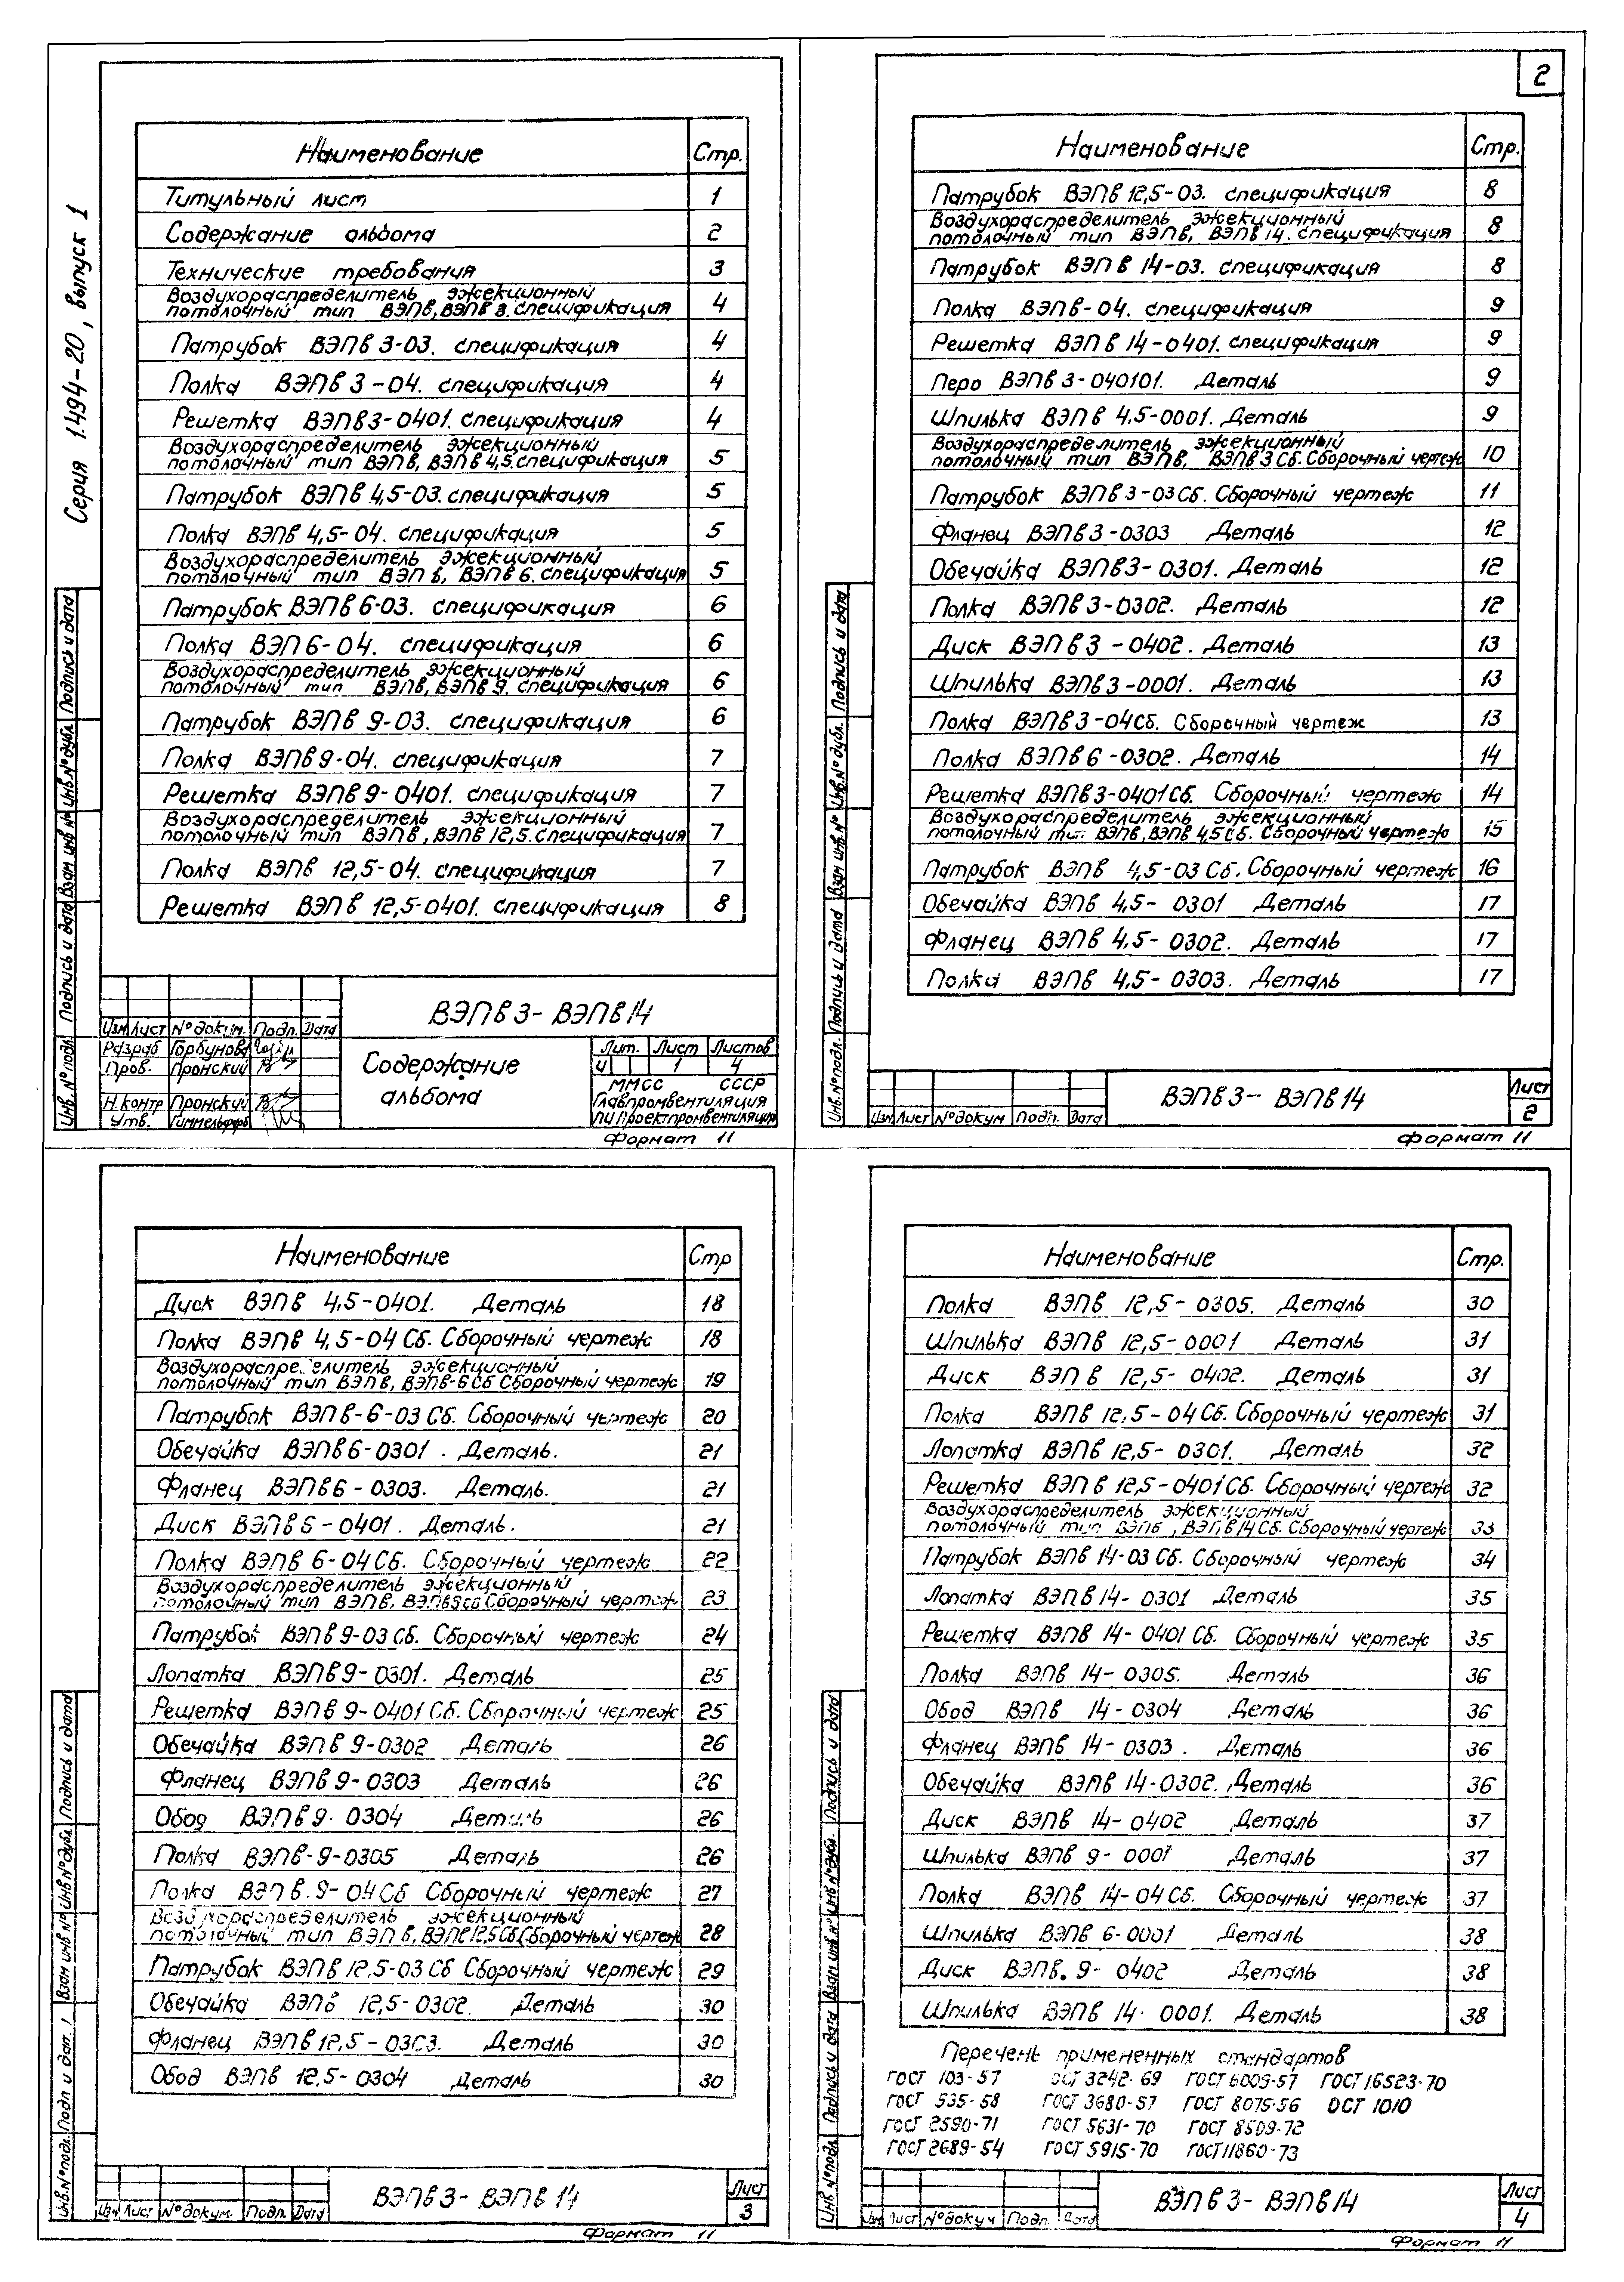 Серия 1.494-20, выпуск 1
Наименование Стр.
Титульный лист 1
Содержание альбома 2
Технические требования 3
Воздухораспределитель эжекционный
потолочный тип ВЭПв, ВЭПв 3. спецификация 4
Патрубок ВЭПв 3-03. спецификация 4
Полка ВЭПв 3-04. спецификация 4
Решетка ВЭПв3-0401. спецификация 4
Воздухораспределитель эжекционный
потолочный тип ВЭПв, ВЭПв 4,5. спецификация 5
Патрубок ВЭПв 4,5-03. спецификация 5
Полка ВЭПв 4,5-04. спецификация 5
Воздухораспределитель эжекционный
потолочный тип ВЭПв, ВЭПв 6. спецификация 5
Патрубок ВЭПв 6-03. спецификация 6
Полка ВЭП6-04. спецификация 6
Воздухораспределитель эжекционный
потолочный тип ВЭПв, ВЭПв 9. спецификация 6
Патрубок ВЭПв 9-03. спецификация 6
Полка ВЭПв9-04. спецификация 7
Решетка ВЭПв 9-0401. спецификация 7
Воздухораспределитель эжекционный
потолочный тип ВЭПв, ВЭПв 12,5. спецификация 7
Полка ВЭПв 12,5-04. спецификация 7
Решетка ВЭПв 12,5-0401. спецификация 8
Инв.№подл. Подпись и дата Взам инв № Инв.№дубл. Подпись и дата
Изм Лист №докум. Подп. Дата
Разраб Горбунова
Пров. Пронский
Н.контр Пронский
Утв.
ВЭПв3-ВЭПв14
Содержание
альбома
Лит. Лист Листов
И 1 4
ММСС СССР
Главпромвентиляция
ПИ Проектпромвентиляция
Формат 11
2
Наименование Стр.
Патрубок ВЭПв 12,5-03. спецификация 8
Воздухораспределитель эжекционный
потолочный тип ВЭПв, ВЭПв 14. спецификация 8
Патрубок ВЭПв 14-03. спецификация 8
Полка ВЭПв-04. спецификация 9
Решетка ВЭПв 14-0401. спецификация 9
Перо ВЭПв 3-040101. Деталь 9
Шпилька ВЭПв 4,5-0001. Деталь 9
Воздухораспределитель эжекционный
потолочный тип ВЭПв, ВЭПв 3 Сб. Сборочный чертеж 10
Патрубок ВЭПв3-03Сб. Сборочный чертеж 11
Фланец ВЭПв3-0303 Деталь 12
Обечайка ВЭПв3-0301. Деталь 12
Полка ВЭПв 3-0302. Деталь 12
Диск ВЭПв 3-0402. Деталь 13
Шпилька ВЭПв3-0001. Деталь 13
Полка ВЭПв3-04Сб. Сборочный чертеж 13
Полка ВЭПв 6-0302. Деталь 14
Решетка ВЭПв3-0401Сб. Сборочный чертеж 14
Воздухораспределитель эжекционный
потолочный тип ВЭПв, ВЭПв 4,5Сб. Сборочный чертеж 15
Патрубок ВЭПв 4,5-03 Сб. Сборочный чертеж 16
Обечайка ВЭПв 4,5-0301 Деталь 17
Фланец ВЭПв 4,5-0302. Деталь 17
Полка ВЭПв 4,5-0303. Деталь 17
Инв.№подл. Подпись и дата Взам инв.№ Инв.№дубл. Подпись и дата
Изм Лист №докум Подп. Дата
ВЭПв3-ВЭПв14
Лист
2
Формат 11
Наименование Стр
Диск ВЭПв 4,5-0401. Деталь 18
Полка ВЭПв 4,5-04 Сб. Сборочный чертеж 18
Воздухораспределитель эжекционный
потолочный тип ВЭПв, ВЭПв-6Сб Сборочный чертеж 19
Патрубок ВЭПв-6-03 Сб. Сборочный чертеж 20
Обечайка ВЭПв6-0301. Деталь. 21
Фланец ВЭПв6-0303. Деталь. 21
Диск ВЭПв6-0401. Деталь. 21
Полка ВЭПв 6-04Сб. Сборочный чертеж 22
Воздухораспределитель эжекционный
потолочный тип ВЭПв, ВЭПв9Сб Сборочный чертеж 23
Патрубок ВЭПв9-03 Сб. Сборочный чертеж 24
Лопатка ВЭПв9-0301. Деталь 25
Решетка ВЭПв 9-0401 Сб. Сборочный чертеж 25
Обечайка ВЭПв 9-0302 Деталь 26
Фланец ВЭПв9-0303 Деталь 26
Обод ВЭПв9-0304 Деталь 26
Полка ВЭПв-9-0305 Деталь 26
Полка ВЭПв.9-04Сб Сборочный чертеж 27
Воздухораспределитель эжекционный
потолочный тип ВЭПв, ВЭПв12,5Сб Сборочный чертеж 28
Патрубок ВЭПв12,5-03 Сб Сборочный чертеж 29
Обечайка ВЭПв 12,5-0302. Деталь 30
Фланец ВЭПв12,5-0303. Деталь 30
Обод ВЭПв 12,5-0304 Деталь 30
Инв.№подл. Подп и дат. Взам инв № Инв №дубл Подпись и дата
Изм Лист №докум. Подп. Дата
ВЭПв3-ВЭПв 14
Лист
3
Формат 11
Наименование Стр.
Полка ВЭПв 12,5-0305. Деталь 30
Шпилька ВЭПв 12,5-0001 Деталь 31
Диск ВЭПв 12,5-0402. Деталь 31
Полка ВЭПв 12,5-04 Сб. Сборочный чертеж 31
Лопатка ВЭПв 12,5-0301. Деталь 32
Решетка ВЭПв 12,5-0401Сб. Сборочный чертеж 32
Воздухораспределитель эжекционный
потолочный тип ВЭПв, ВЭПв14Сб. Сборочный чертеж 33
Патрубок ВЭПв 14-03 Сб. Сборочный чертеж 34
Лопатка ВЭПв14-0301 Деталь 35
Решетка ВЭПв 14-0401 Сб. Сборочный чертеж 35
Полка ВЭПв 14-0305. Деталь 36
Обод ВЭПв 14-0304 Деталь 36
Фланец ВЭПв 14-0303. Деталь 36
Обечайка ВЭПв 14-0302. Деталь 36
Диск ВЭПв 14-0402 Деталь 37
Шпилька ВЭПв 9-0001 Деталь 37
Полка ВЭПв 14-04Сб. Сборочный чертеж 37
Шпилька ВЭПв 6-0001 Деталь 38
Диск ВЭПв. 9-0402 Деталь 38
Шпилька ВЭПв 14-0001. Деталь 38
Перечень примененных стандартов
ГОСТ 103-57 ОСТ 3242-69 ГОСТ6009-57 ГОСТ16523-70
ГОСТ 535-58 ГОСТ 3680-57 ГОСТ 8075-56 ОСТ 1010
ГОСТ 2590-71 ГОСТ 5631-70 ГОСТ 8509-72
ГОСТ2689-54 ГОСТ5915-70 ГОСТ11860-73
Инв №подл Подпись и дата Взам инв.№ Инв №дубл. Подпись и дата
Изм Лист №докум Подп. Дата
ВЭПв3-ВЭПв14
Лист
4
Формат 11